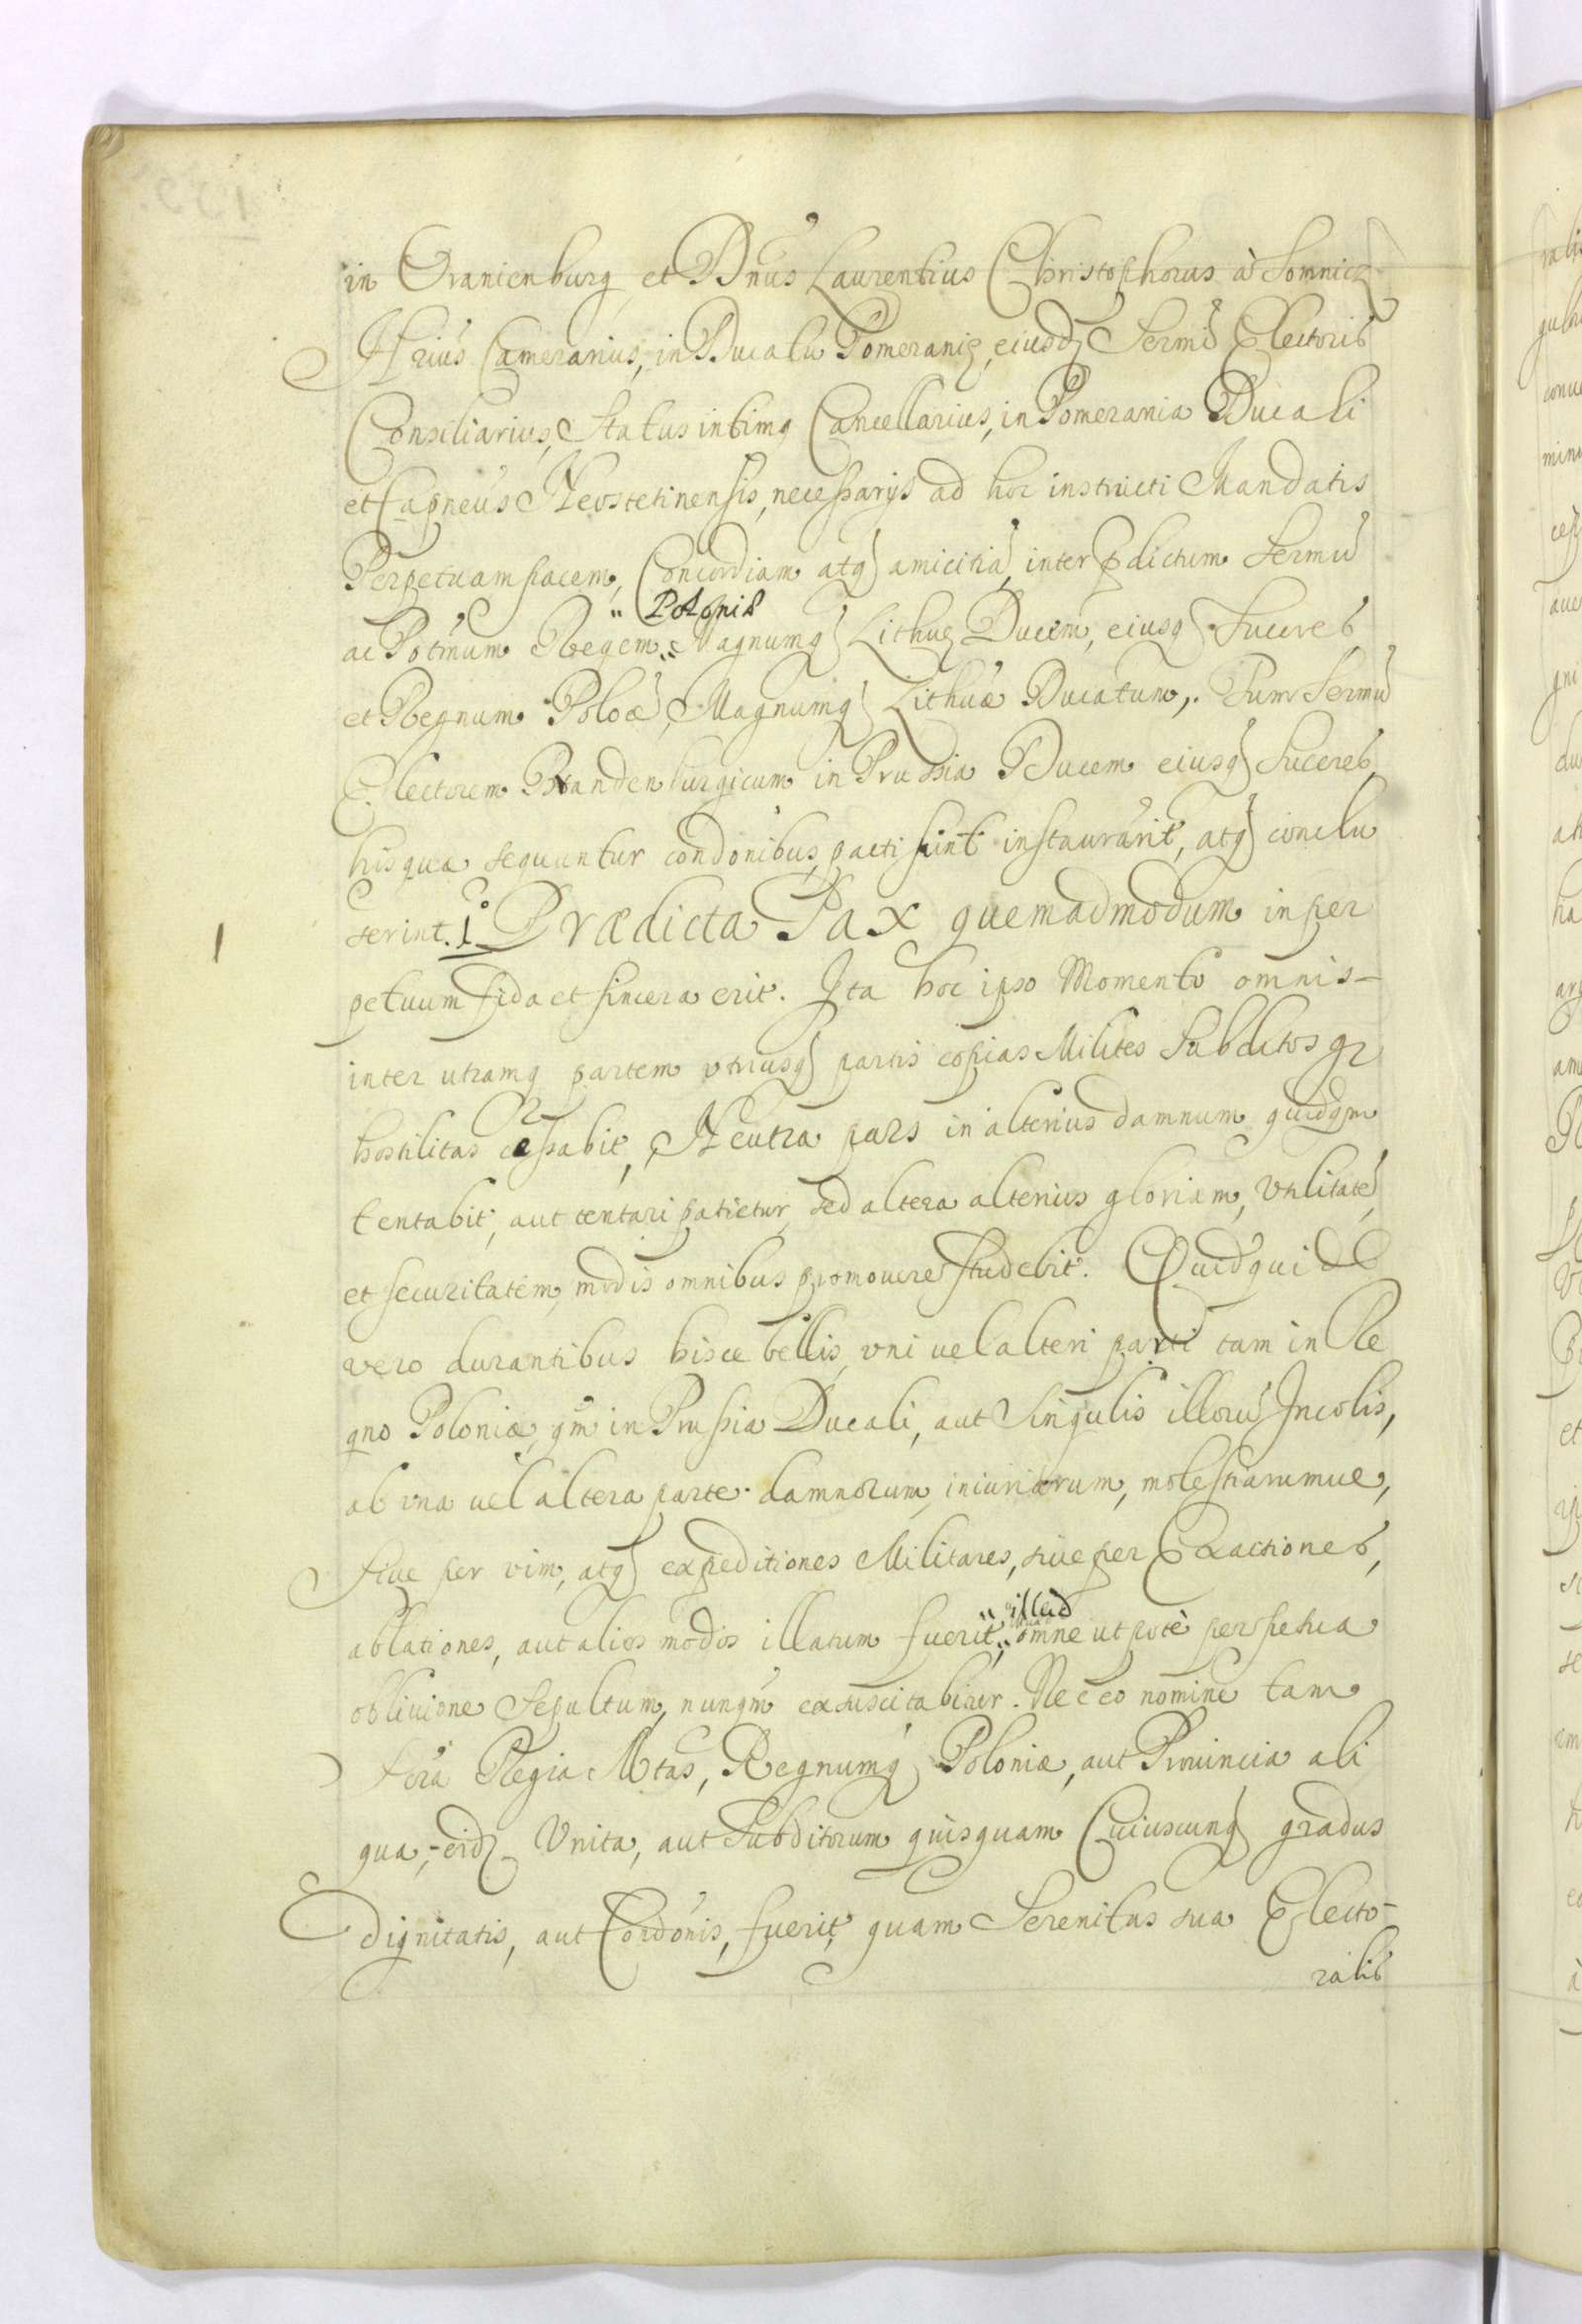 in Oranienburg et Dnus Laurentius Christophorus à Somnicz
Hrius Camerarius, in Ducatu Pomeranię, eiusdq Sermi Electoris
Consiliarius, Status intimq Cancellarius, in Pomerania Ducali
et Capneus Neostetinensis, necessarijs ad hoc instructi Mandatis
Perpetuam pacem, Concordiam atq amicitiã, inter pdictum Sermũ
" Poloniæ
ac Potmum Regem " Magnumq Lithuę Ducem, eiusq Succres
et Regnum Poloæ, Magnumq Lithuæ Ducatum, Tum Sermũ
Electorem Brandenburgicum in Prussia Ducem eiusq Succeres,
his qua sequuntur condonibus, pacti sunt instaurarit, atq conclu
serint. 1º Prædicta Pax quemadmodum in per
1
petuum fida et sincera erit. Ita hoc ipso Momento omnis
inter utramq partem vtriusq partis copias Milites Subditosqz
hostilitas cessabit, Neutra pars in alterius damnum quidqm
tentabit, aut tentari patietur, sed altera alterius gloriam, Vtilitatẽ,
et securitatem, modis omnibus promouere studebit. Quidquid
vero durantibus hisce bellis, vni uel alteri parti tam in Re
gno Poloniæ, qm in Prussia Ducali, aut Singulis illorũ Incolis,
ab vna uel altera parte damnorum, iniuriarum, molestiarumue,
siue per vim, atq expeditiones Militares, siue per Exactiones,
" illud
ablationes, aut alios modos illatum fuerit, " omne ut potè perpetua
obliuione Sepultum, nunqm exsuscitabitur. Nec eo nomine tam
Sera Regia Mtas, Regnumq Poloniæ, aut Prouincia ali
qua, eidq Vnita, aut Subditorum quisquam Cuiuscunq gradus
Dignitatis, aut Condonis, fuerit, quam Serenitas sua Electo-
ralis